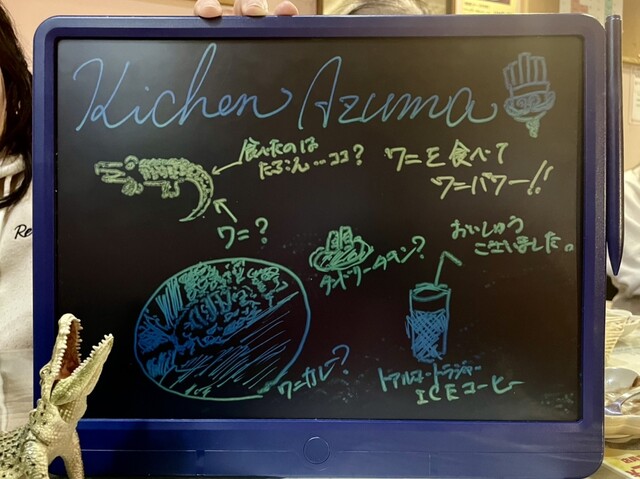 Kichen Azuma
食べたのは
たぶん…ココ?
ワニを食べて
ワニパワー!!
ワニ?
おいしゅう
ございました。
タンドリータン?
ワニカレー?
トアルコトラジャー
ICEコーヒー
Re